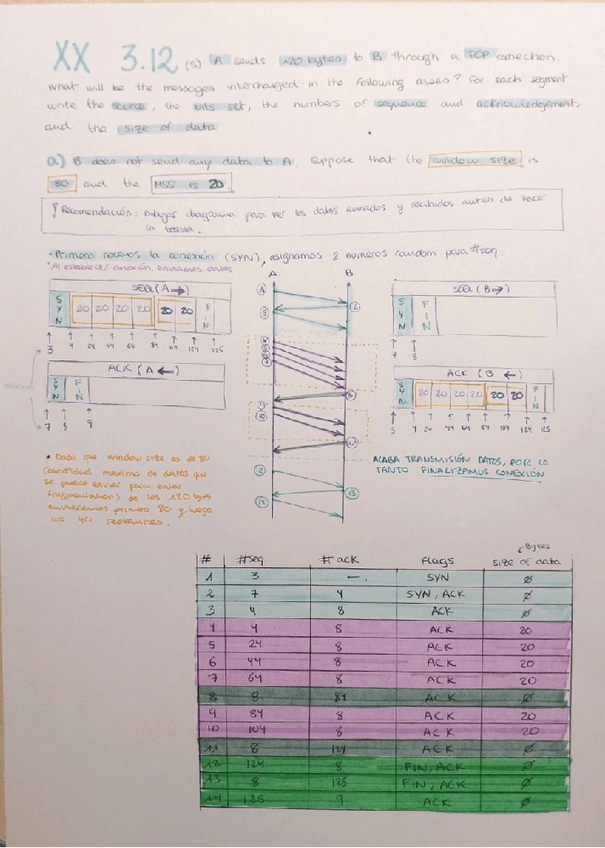 XX 3.12 (S) A sends 120 bytes to B through a TCP conection.
What will be the messages interchanged in the following cases? For each segment
write the source, the bits set, the numbers of sequence and acknowledgement,
and the size of data
a) B does not send any data to A. Suppose that the window size is
80 and the MSS is 20.
! Recomendación: Dibujar diagrama para ver los datos enviados y recibidos antes de hacer
la tabla.
• Primero hacemos la conexión (SYN), asignamos 2 numeros random para #seq
* Al establecer conexión, enviamos datos
SEQ (A →)
SYN 20 20 20 20 20 20 FIN
3 4 24 44 64 84 104 124 125
ACK (A ←)
SYN FIN
7 8 9
A B
1
2
3
8
12
13
14
SEQ (B →)
SYN FIN
7 8
ACK (B ←)
SYN 20 20 20 20 20 20 FIN
3 4 24 44 64 84 104 124 125
* Dado que window size es de 80
(cantidad máxima de datos que
se puede enviar para evitar
fragmentation) de los 120 bytes
enviaremos primero 80 y luego
los 40 restantes.
ACABA TRANSMISIÓN DATOS, POR LO
TANTO FINALIZAMOS CONEXIÓN
Bytes
# #seq # ack Flags size of data
1 3 — SYN ∅
2 7 4 SYN, ACK ∅
3 4 8 ACK ∅
4 4 8 ACK 20
5 24 8 ACK 20
6 44 8 ACK 20
7 64 8 ACK 20
8 8 84 ACK ∅
9 84 8 ACK 20
10 104 8 ACK 20
11 8 124 ACK ∅
12 124 8 FIN, ACK ∅
13 8 125 FIN, ACK ∅
14 125 9 ACK ∅